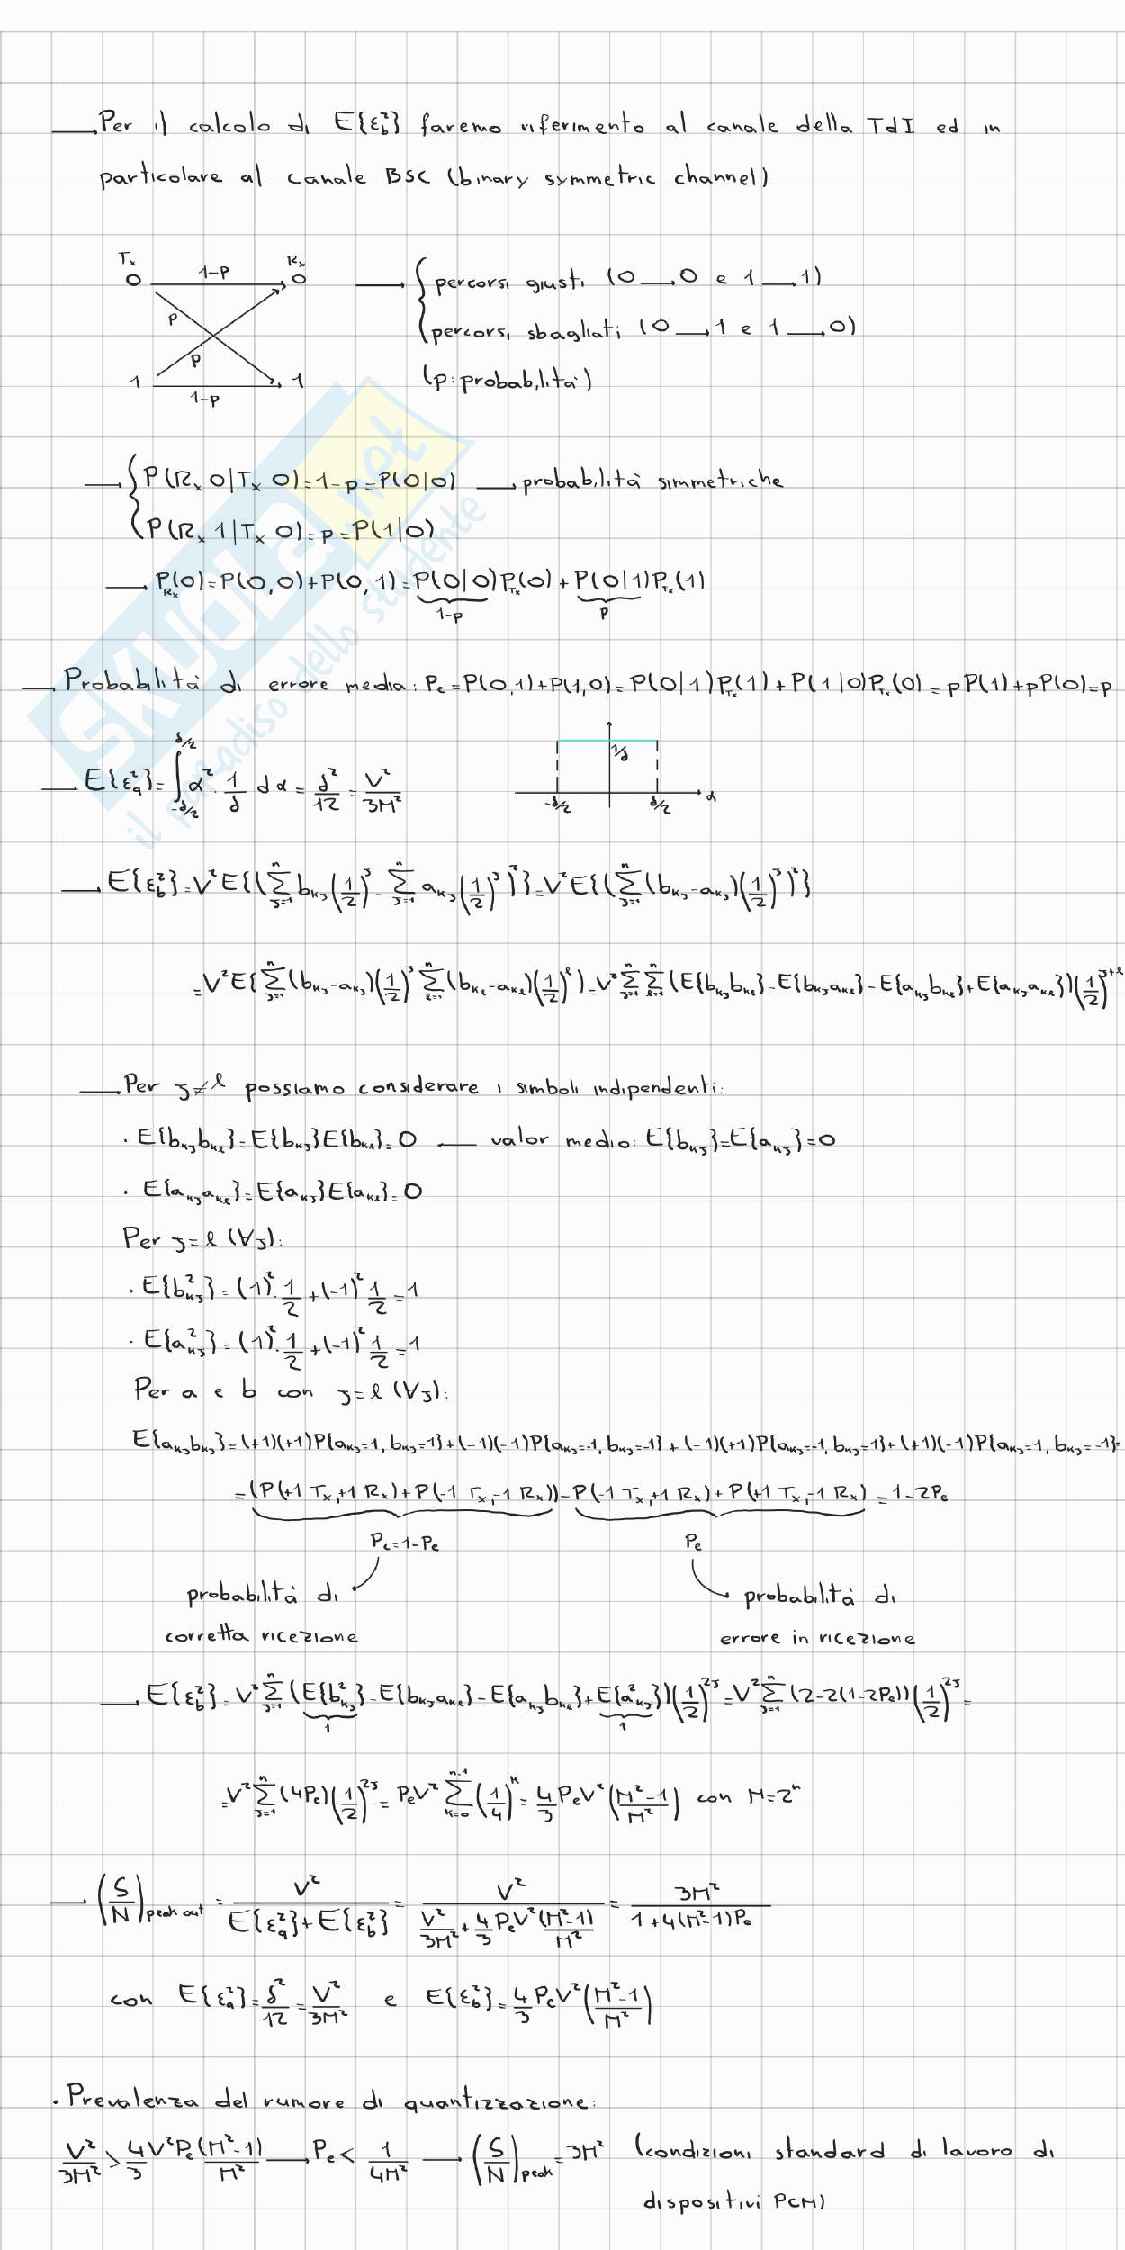 Per il calcolo di E{ε_b²} faremo riferimento al canale della TdI ed in
particolare al canale BSC (binary symmetric channel)
Tx Rx
0 1-P 0 → { percorsi giusti (0 → 0 e 1 → 1)
P
percorsi sbagliati (0 → 1 e 1 → 0)
P
1 1-P 1
(p: probabilità)
→ { P(Rx 0|Tx 0) = 1-p = P(0|0) → probabilità simmetriche
P(Rx 1|Tx 0) = p = P(1|0)
→ P_Rx(0) = P(0,0) + P(0,1) = P(0|0)P_Tx(0) + P(0|1)P_Tx(1)
1-p p
→ Probabilità di errore media: Pe = P(0,1) + P(1,0) = P(0|1)P_Tx(1) + P(1|0)P_Tx(0) = pP(1) + pP(0) = p
→ E{ε_q²} = ∫_{-δ/2}^{δ/2} α² · 1/δ dα = δ²/12 = V²/3M²
1/δ
-δ/2 δ/2 α
→ E{ε_b²} = V²E{(Σ_{j=1}^n b_kj (1/2)^j - Σ_{j=1}^n a_kj (1/2)^j)²} = V²E{(Σ_{j=1}^n (b_kj - a_kj)(1/2)^j)²}
= V²E{Σ_{j=1}^n (b_kj - a_kj)(1/2)^j Σ_{ℓ=1}^n (b_kℓ - a_kℓ)(1/2)^ℓ} = V² Σ_{j=1}^n Σ_{ℓ=1}^n (E{b_kj b_kℓ} - E{b_kj a_kℓ} - E{a_kj b_kℓ} + E{a_kj a_kℓ})(1/2)^{j+ℓ}
→ Per j≠ℓ possiamo considerare i simboli indipendenti:
· E{b_kj b_kℓ} = E{b_kj}E{b_kℓ} = 0 — valor medio: E{b_kj} = E{a_kj} = 0
· E{a_kj a_kℓ} = E{a_kj}E{a_kℓ} = 0
Per j=ℓ (∀j):
· E{b_kj²} = (1)² · 1/2 + (-1)² 1/2 = 1
· E{a_kj²} = (1)² · 1/2 + (-1)² 1/2 = 1
Per a e b con j=ℓ (∀j):
E{a_kj b_kj} = (+1)(+1)P{a_kj=1, b_kj=1} + (-1)(-1)P{a_kj=-1, b_kj=-1} + (-1)(+1)P{a_kj=-1, b_kj=1} + (+1)(-1)P{a_kj=1, b_kj=-1} =
= (P(+1 Tx, +1 Rx) + P(-1 Tx, -1 Rx)) - P(-1 Tx, +1 Rx) + P(+1 Tx, -1 Rx) = 1-2Pe
Pc = 1-Pe Pe
probabilità di probabilità di
corretta ricezione errore in ricezione
→ E{ε_b²} = V² Σ_{j=1}^n (E{b_kj²} - E{b_kj a_kℓ} - E{a_kj b_kℓ} + E{a_kj²})(1/2)^{2j} = V² Σ_{j=1}^n (2-2(1-2Pe))(1/2)^{2j} =
1 1
= V² Σ_{j=1}^n (4Pe)(1/2)^{2j} = PeV² Σ_{k=0}^{n-1} (1/4)^k = 4/3 PeV² (M²-1/M²) con M=2^n
→ (S/N)_peak out = V²/(E{ε_q²} + E{ε_b²}) = V²/(V²/3M² + 4/3 PeV² (M²-1)/M²) = 3M²/(1+4(M²-1)Pe)
con E{ε_q²} = δ²/12 = V²/3M² e E{ε_b²} = 4/3 PeV² (M²-1/M²)
· Prevalenza del rumore di quantizzazione:
V²/3M² > 4/3 V²Pe (M²-1)/M² → Pe < 1/4M² → (S/N)_peak = 3M² (condizioni standard di lavoro di
dispositivi PCM)
SKUOLA.net
il paradiso dello studente